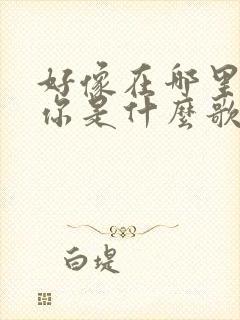 好像在哪里
你是什麼歌
白堤